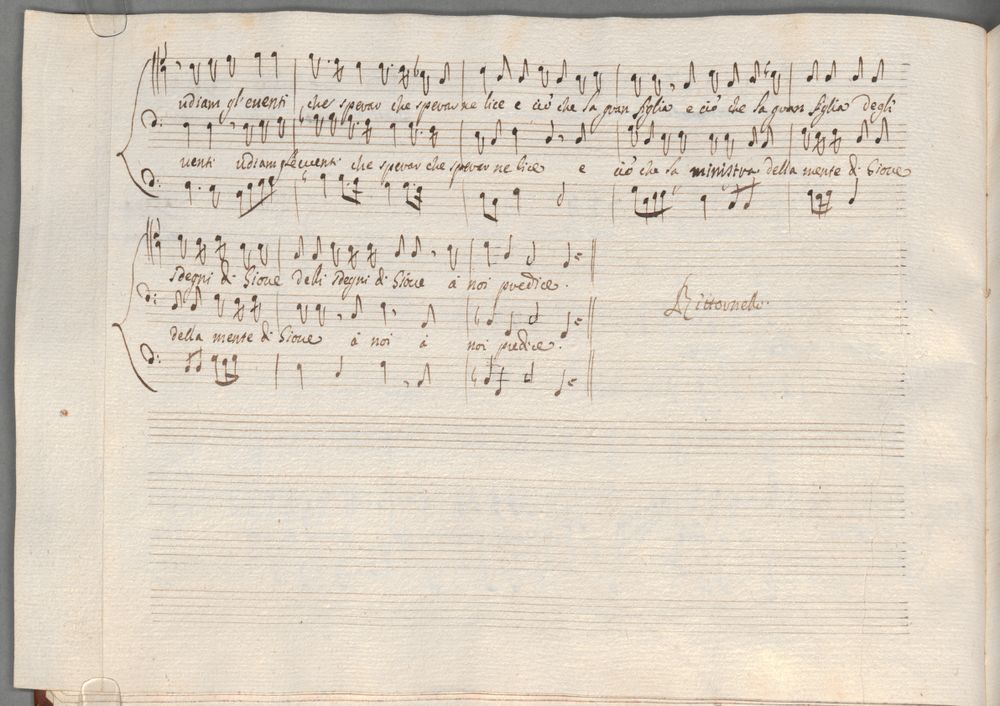 udiam gl'eventi che sperar che sperar ne lice e ciò che la gran figlia e ciò che la gran figlia degli
venti udiam gl'eventi che sperar che sperar ne lice e ciò che la ministra della mente di Giove
sdegni di Giove delli sdegni di Giove a noi predice.
Rittornello.
della mente di Giove à noi à noi predice.